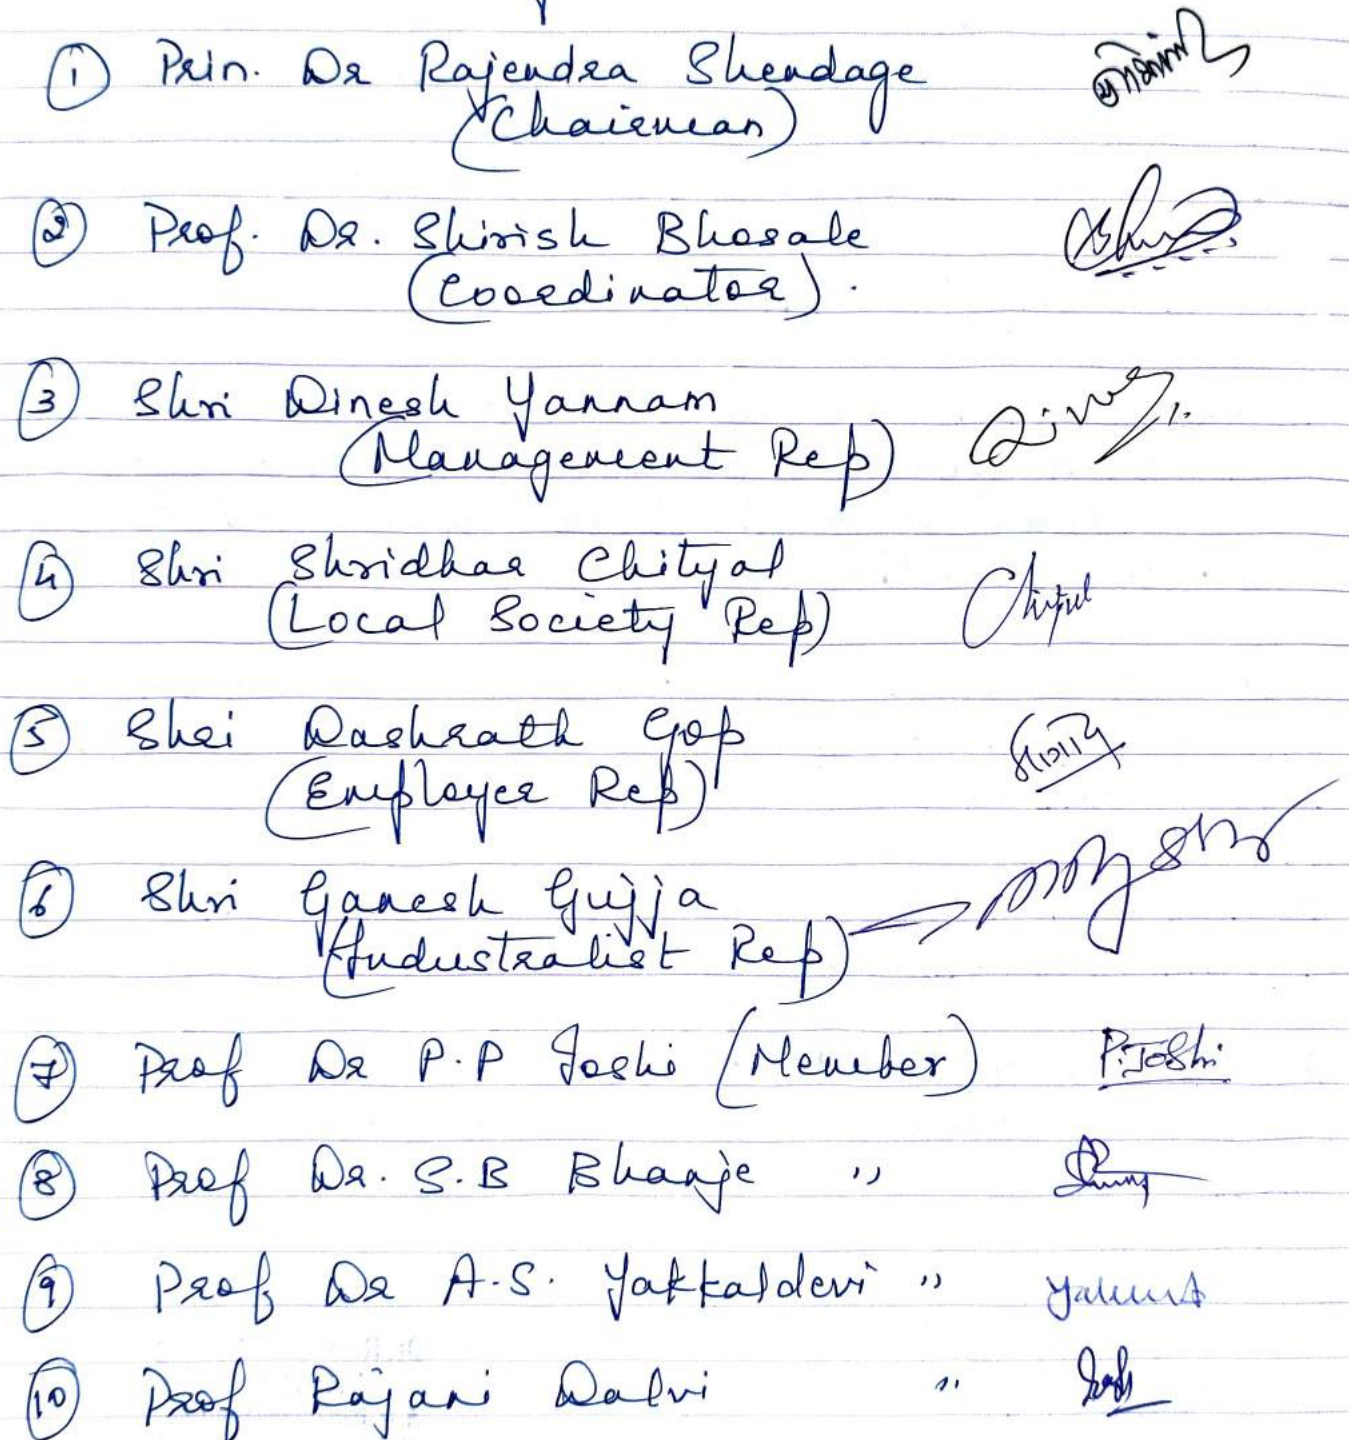 ① Prin. Dr Rajendra Shendage
(Chairman)
② Prof. Dr. Shirish Bhosale
(Coordinator).
③ Shri Dinesh Yannam
(Management Rep)
④ Shri Shridhar Chityal
(Local Society Rep)
⑤ Shri Dashrath Gop
(Employer Rep)
⑥ Shri Ganesh Gujja
(Industralist Rep)
⑦ Prof Dr P.P Joshi (Member) P.Joshi
⑧ Prof Dr. S.B Bhanje "
⑨ Prof Dr A.S. Yakkaldevi "
⑩ Prof Rajani Dalvi "